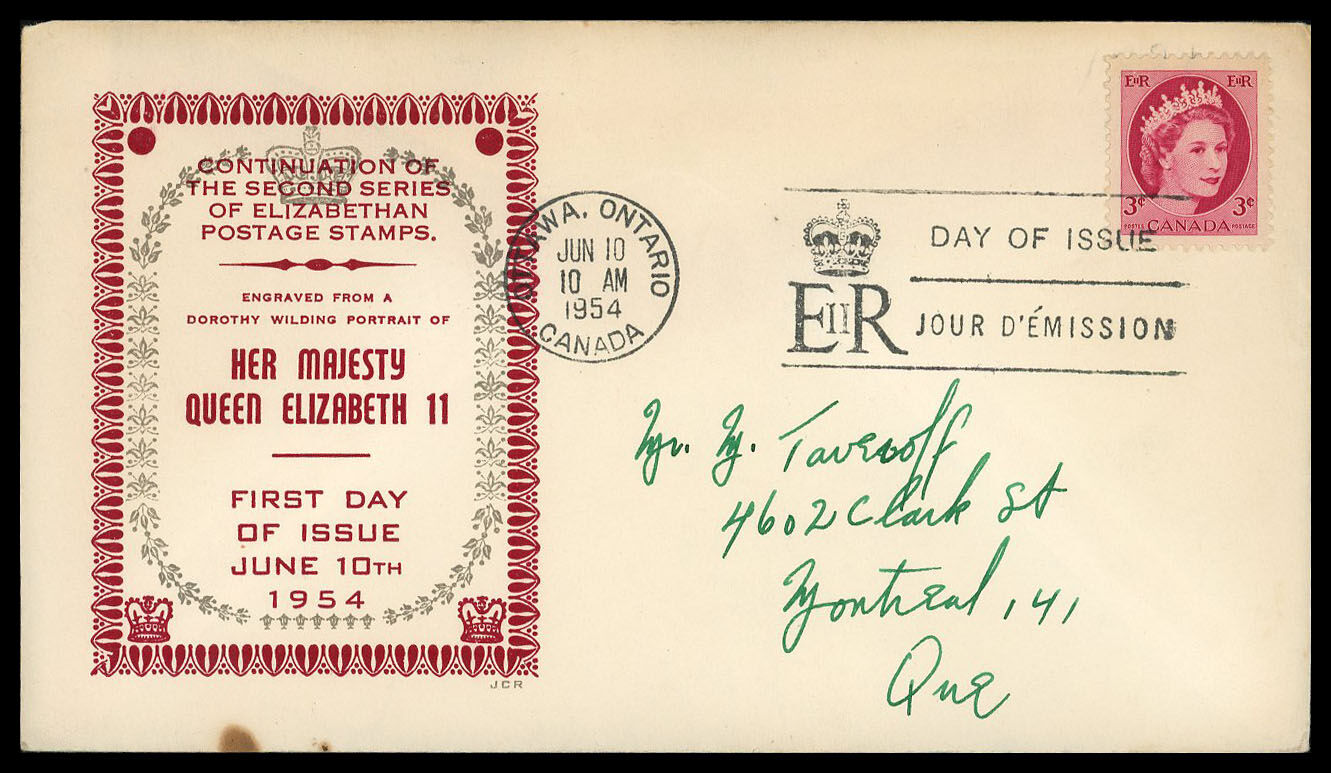 CONTINUATION OF
THE SECOND SERIES
OF ELIZABETHAN
POSTAGE STAMPS.
ENGRAVED FROM A
DOROTHY WILDING PORTRAIT OF
HER MAJESTY
QUEEN ELIZABETH 11
FIRST DAY
OF ISSUE
JUNE 10TH
1954
JCR
OTTAWA, ONTARIO
JUN 10
10 AM
1954
CANADA
EIIR
DAY OF ISSUE
JOUR D'ÉMISSION
EIIR EIIR
3¢ 3¢
POSTES CANADA POSTAGE
Mr. M. Taveroff
4602 Clark St
Montreal, 41
Que